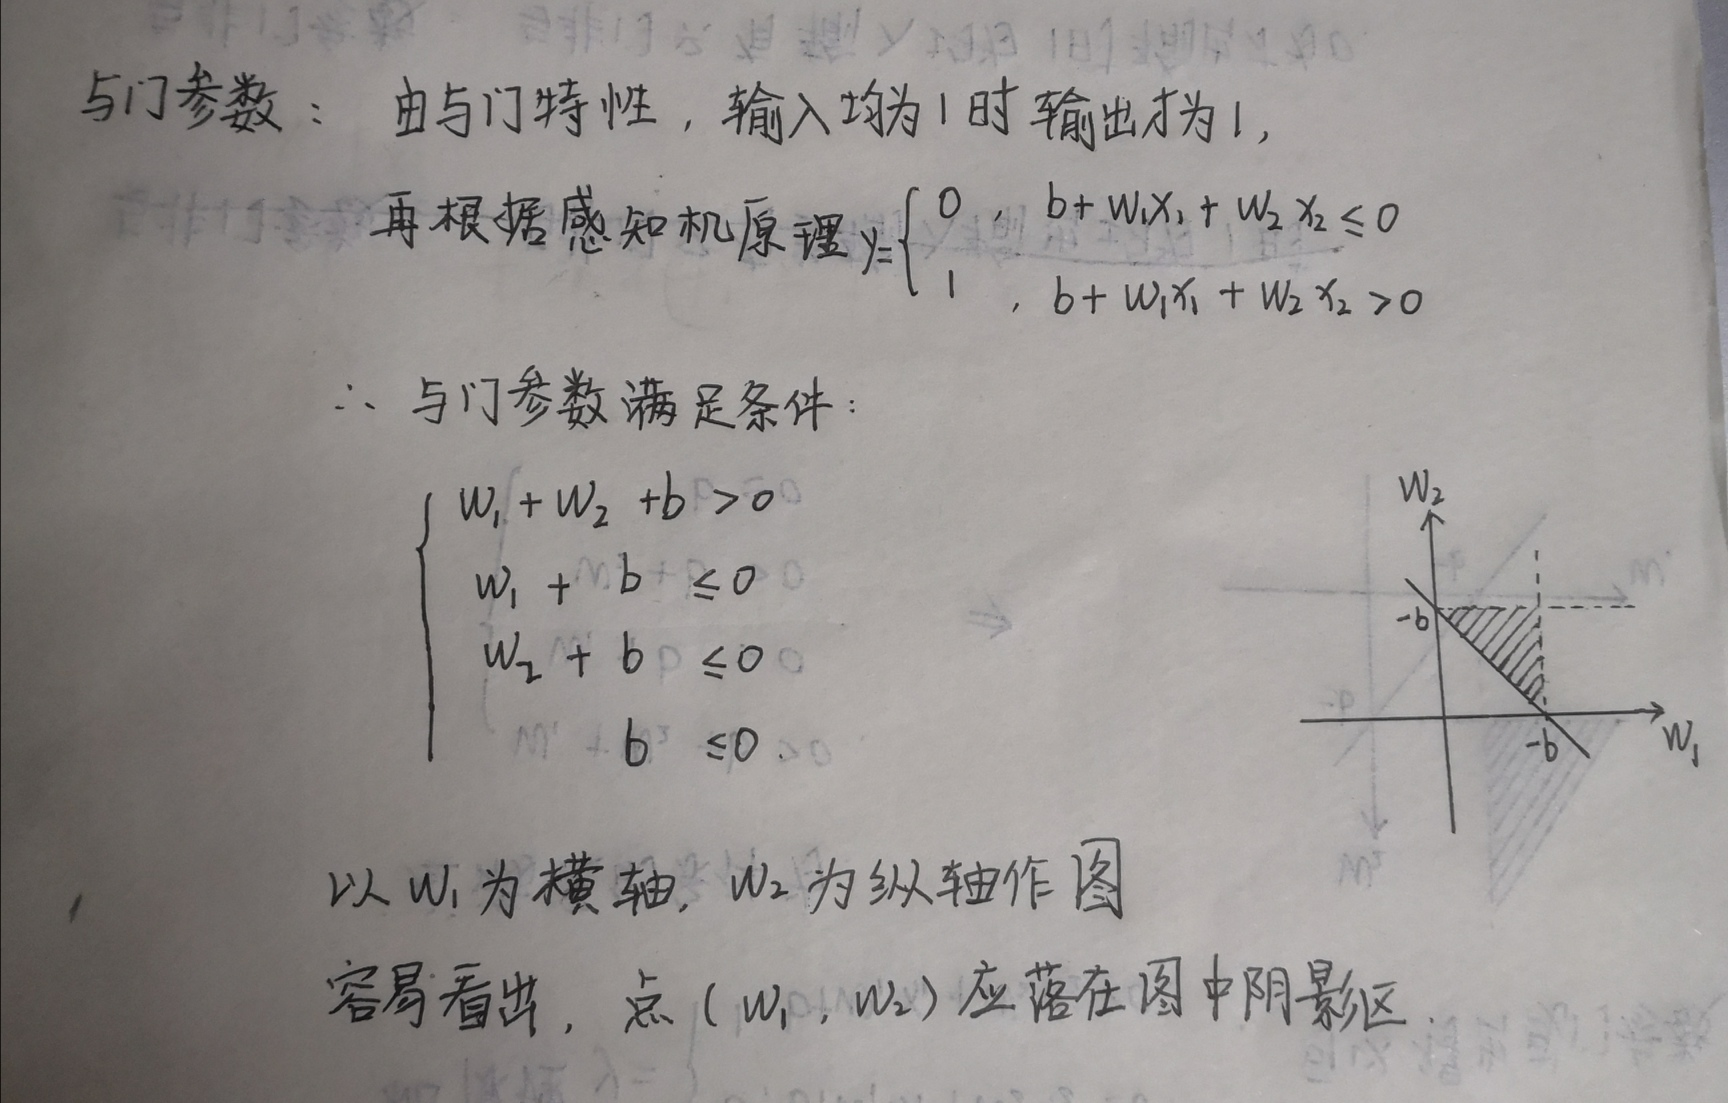 与门参数： 由与门特性，输入均为1时输出才为1，
再根据感知机原理 y={ 0 , b+W₁X₁+W₂X₂≤0
1 , b+W₁X₁+W₂X₂>0
∴ 与门参数满足条件：
W₁+W₂+b>0
W₁+b≤0
W₂+b≤0
b≤0
W₂
-b
-b
W₁
以W₁为横轴，W₂为纵轴作图
容易看出，点(W₁,W₂)应落在图中阴影区.